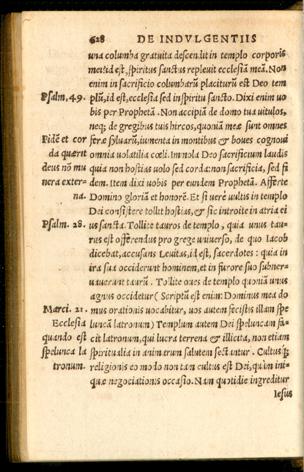 628 DE INDVLGENTIIS
una columba gratuita descendit in templo corporis
mei: id est, spiritus sanctus repleuit ecclesiā meā. Non
enim in sacrificio columbarū placiturū est Deo tem
Psalm. 49. plū, id est, ecclesia sed in spiritu sancto. Dixi enim uo
bis per Prophetā. Non accipiā de domo tua uitulos,
neq; de gregibus tuis hircos, quoniā meæ sunt omnes
Fidē et cor feræ syluarū, iumenta in montibus & boues cognoui
da quærit omnia uolatilia cœli. Immola Deo sacrificium laudis
deus nō mu quia non hostias uolo sed cordæ: non sacrificia, sed fi
nera exter- dem. Item dixi uobis per eundem Prophetā. Afferte
na. Domino gloriā et honorē. Et si uerè uultis in templo
Dei consistere tollit hostias, & sic introite in atria ei
Psalm. 28. us sancta. Tollite tauros de templo, quia unus tau-
rus est offerendus pro grege uniuerso, de quo Iacob
dicebat, accusans Leuitas, id est, sacerdotes: quia in
ira sua occiderunt hominem, et in furore suo subner-
uauerunt taurū. Tollite oues de templo quoniā unus
agnus occidetur (Scriptū est enim: Dominus mea do
Marci. 21. mus orationis uocabitur, uos autem fecistis illam spe
Ecclesia luncā latronum) Templum autem Dei speluncam fa-
quando est cit latronum, qui lucra terrena & illicita, non etiam
spelunca la spiritualia in animarum salutem sectantur. Cultusq;
tronum. religionis eo modo non tam cultus est Dei, quàm ini-
quæ negociationis occasio. Nam quotidie ingreditur
Iesus